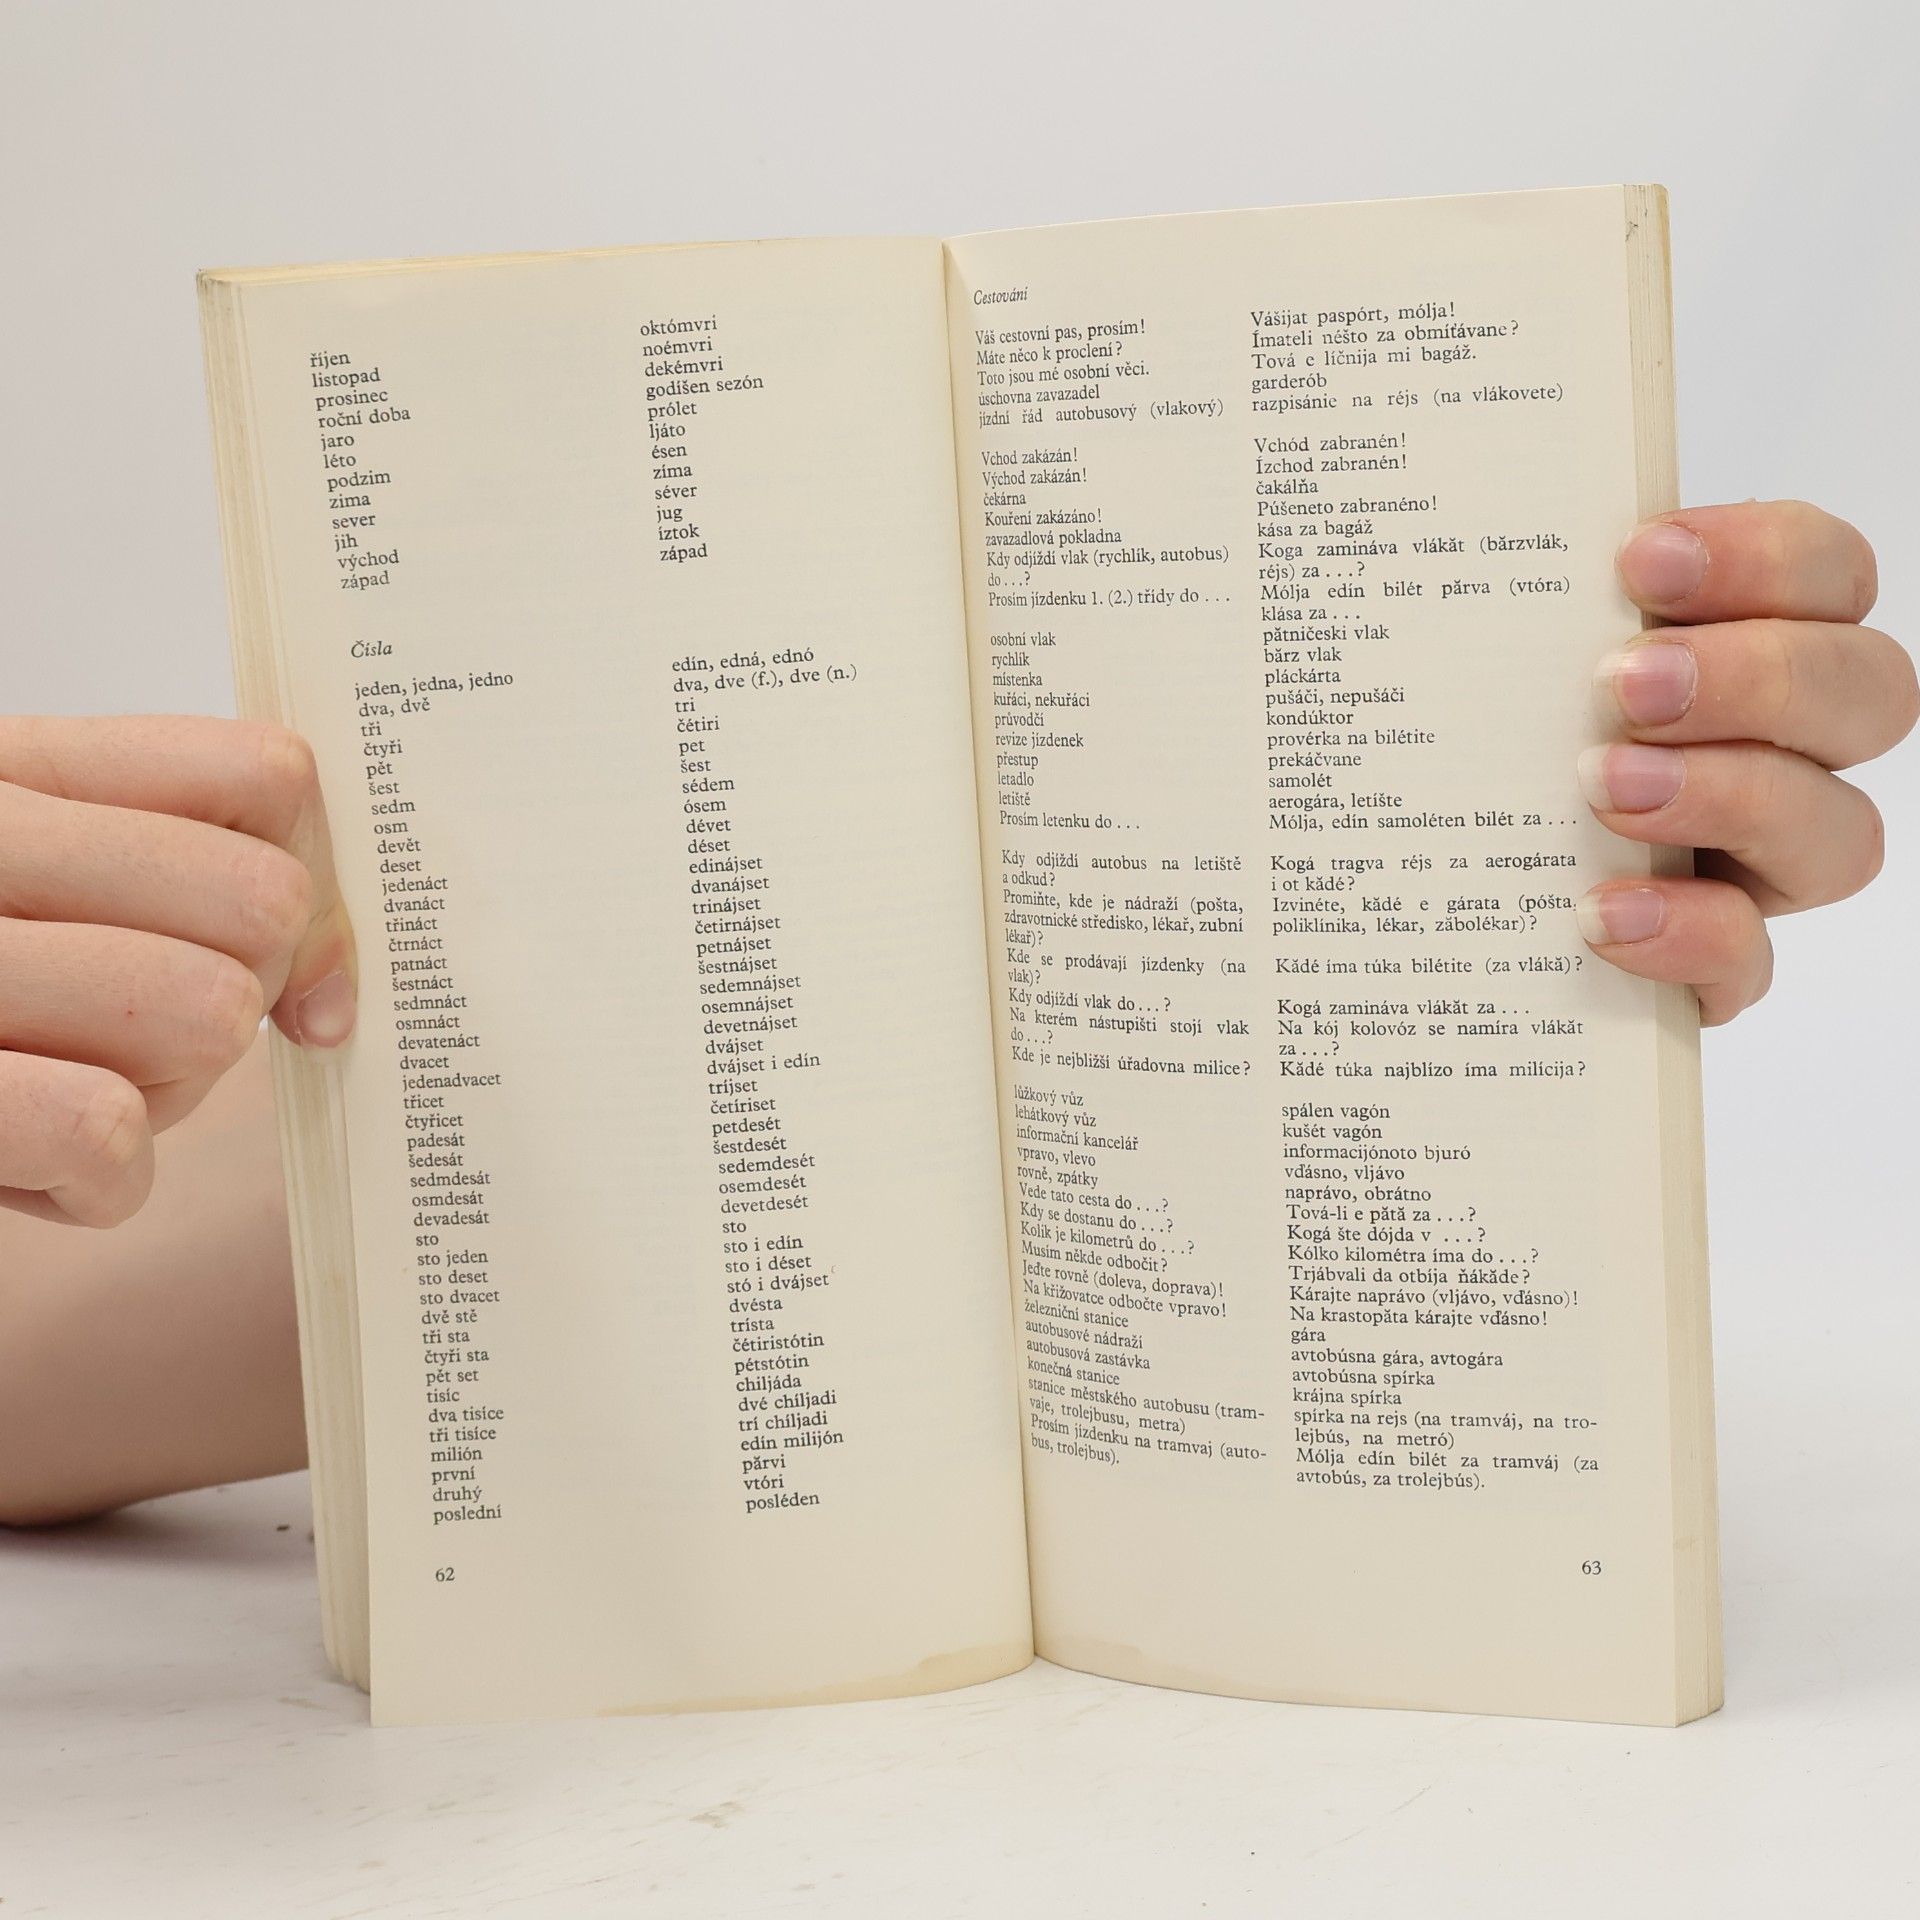 říjen
listopad
prosinec
roční doba
jaro
léto
podzim
zima
sever
jih
východ
západ
októmvri
noémvri
dekémvri
godíšen sezón
prólet
ljáto
ésen
zíma
séver
jug
íztok
západ
Čísla
jeden, jedna, jedno
dva, dvě
tři
čtyři
pět
šest
sedm
osm
devět
deset
jedenáct
dvanáct
třináct
čtrnáct
patnáct
šestnáct
sedmnáct
osmnáct
devatenáct
dvacet
jedenadvacet
třicet
čtyřicet
padesát
šedesát
sedmdesát
osmdesát
devadesát
sto
sto jeden
sto deset
sto dvacet
dvě stě
tři sta
čtyři sta
pět set
tisíc
dva tisíce
tři tisíce
milión
první
druhý
poslední
edín, edná, ednó
dva, dve (f.), dve (n.)
tri
čétiri
pet
šest
sédem
ósem
dévet
déset
edinájset
dvanájset
trinájset
četirnájset
petnájset
šestnájset
sedemnájset
osemnájset
devetnájset
dvájset
dvájset i edín
tríjset
četíriset
petdesét
šestdesét
sedemdesét
osemdesét
devetdesét
sto
sto i edín
sto i déset
stó i dvájset
dvésta
trísta
čétiristótin
pétstótin
chiljáda
dvé chíljadi
trí chíljadi
edín milijón
părvi
vtóri
posléden
62
Cestování
Váš cestovní pas, prosím!
Máte něco k proclení?
Toto jsou mé osobní věci.
úschovna zavazadel
jízdní řád autobusový (vlakový)
Vchod zakázán!
Východ zakázán!
čekárna
Kouření zakázáno!
zavazadlová pokladna
Kdy odjíždí vlak (rychlík, autobus)
do . . .?
Prosím jízdenku 1. (2.) třídy do . . .
osobní vlak
rychlík
místenka
kuřáci, nekuřáci
průvodčí
revize jízdenek
přestup
letadlo
letiště
Prosím letenku do . . .
Kdy odjíždí autobus na letiště
a odkud?
Promiňte, kde je nádraží (pošta,
zdravotnické středisko, lékař, zubní
lékař)?
Kde se prodávají jízdenky (na
vlak)?
Kdy odjíždí vlak do . . .?
Na kterém nástupišti stojí vlak
do . . .?
Kde je nejbližší úřadovna milice?
lůžkový vůz
lehátkový vůz
informační kancelář
vpravo, vlevo
rovně, zpátky
Vede tato cesta do . . .?
Kdy se dostanu do . . .?
Kolik je kilometrů do . . .?
Musím někde odbočit?
Jeďte rovně (doleva, doprava)!
Na křižovatce odbočte vpravo!
železniční stanice
autobusové nádraží
autobusová zastávka
konečná stanice
stanice městského autobusu (tram-
vaje, trolejbusu, metra)
Prosím jízdenku na tramvaj (auto-
bus, trolejbus).
Vášijat paspórt, mólja!
Ímateli néšto za obmíťávane?
Tová e líčnija mi bagáž.
garderób
razpisánie na réjs (na vlákovete)
Vchód zabranén!
Ízchod zabranén!
čakálňa
Púšeneto zabranéno!
kása za bagáž
Koga zamináva vlákăt (bărzvlák,
réjs) za . . .?
Mólja edín bilét părva (vtóra)
klása za . . .
pătničeski vlak
bărz vlak
pláckárta
pušáči, nepušáči
kondúktor
provérka na bilétite
prekáčvane
samolét
aerogára, letíšte
Mólja, edín samoléten bilét za . . .
Kogá tragva réjs za aerogárata
i ot kădé?
Izvinéte, kădé e gárata (póšta,
poliklínika, lékar, zăbolékar)?
Kădé íma túka bilétite (za vlákă)?
Kogá zamináva vlákăt za . . .
Na kój kolovóz se namíra vlákăt
za . . .?
Kădé túka najblízo íma milícija?
spálen vagón
kušét vagón
informacijónoto bjuró
vďásno, vljávo
naprávo, obrátno
Tová-li e pătă za . . .?
Kogá šte dójda v . . .?
Kólko kilométra íma do . . .?
Trjábvali da otbíja ňákăde?
Kárajte naprávo (vljávo, vďásno)!
Na krastopăta kárajte vďásno!
gára
avtobúsna gára, avtogára
avtobúsna spírka
krájna spírka
spírka na rejs (na tramváj, na tro-
lejbús, na metró)
Mólja edín bilét za tramváj (za
avtobús, za trolejbús).
63